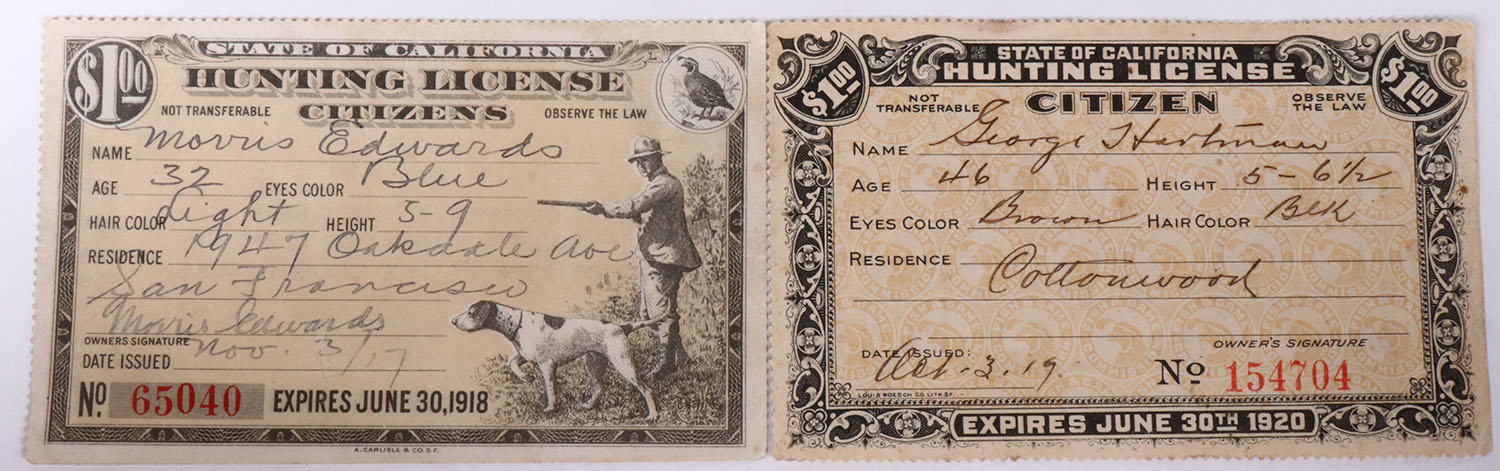 $1.00
STATE OF CALIFORNIA
HUNTING LICENSE
CITIZENS
NOT TRANSFERABLE
OBSERVE THE LAW
NAME Morris Edwards
AGE 32 EYES COLOR Blue
HAIR COLOR Light HEIGHT 5-9
RESIDENCE 1947 Oakdale Ave
San Francisco
Morris Edwards
OWNERS SIGNATURE
DATE ISSUED Nov. 3/17
No 65040 EXPIRES JUNE 30, 1918
A. CARLISLE & CO. S.F.
$1.00 $1.00
STATE OF CALIFORNIA
HUNTING LICENSE
CITIZEN
NOT TRANSFERABLE
OBSERVE THE LAW
NAME George Hartman
AGE 46 HEIGHT 5-6½
EYES COLOR Brown HAIR COLOR Blk
RESIDENCE
Cottonwood
OWNER'S SIGNATURE
DATE ISSUED:
Oct. 3. 19.
No 154704
LOUIS ROESCH CO. LITH. S.F.
EXPIRES JUNE 30TH 1920